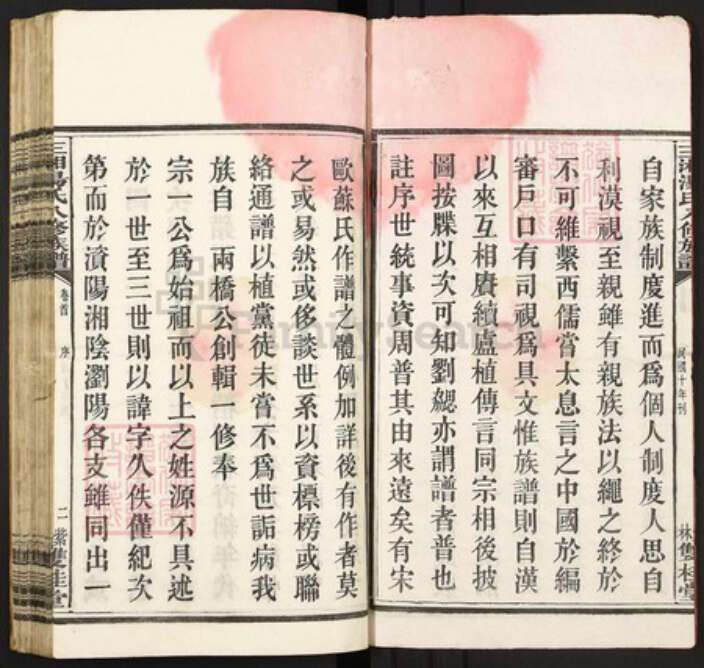 自家族制度進而爲個人制度人思自
利漠視至親雖有親族法以繩之終於
不可維繫西儒嘗太息言之中國於編
審戶口有司視爲具文惟族譜則自漢
以來互相賡續盧植傳言同宗相後披
圖按牒以次可知劉勰亦謂譜者普也
註序世統事資周普其由來遠矣有宋
三湘湯氏八修族譜
民國十年刊
林雙桂堂
歐蘇氏作譜之體例加詳後有作者莫
之或易然或侈談世系以資標榜或聯
絡通譜以植黨徒未嘗不爲世詬病我
族自 兩橋公創輯一修奉
宗一公爲始祖而以上之姓源不具述
於一世至三世則以諱字久佚僅紀次
第而於濱陽湘陰瀏陽各支雖同出一
三湘湯氏八修族譜
卷首
序
二
紫雙桂堂
FamilySearch